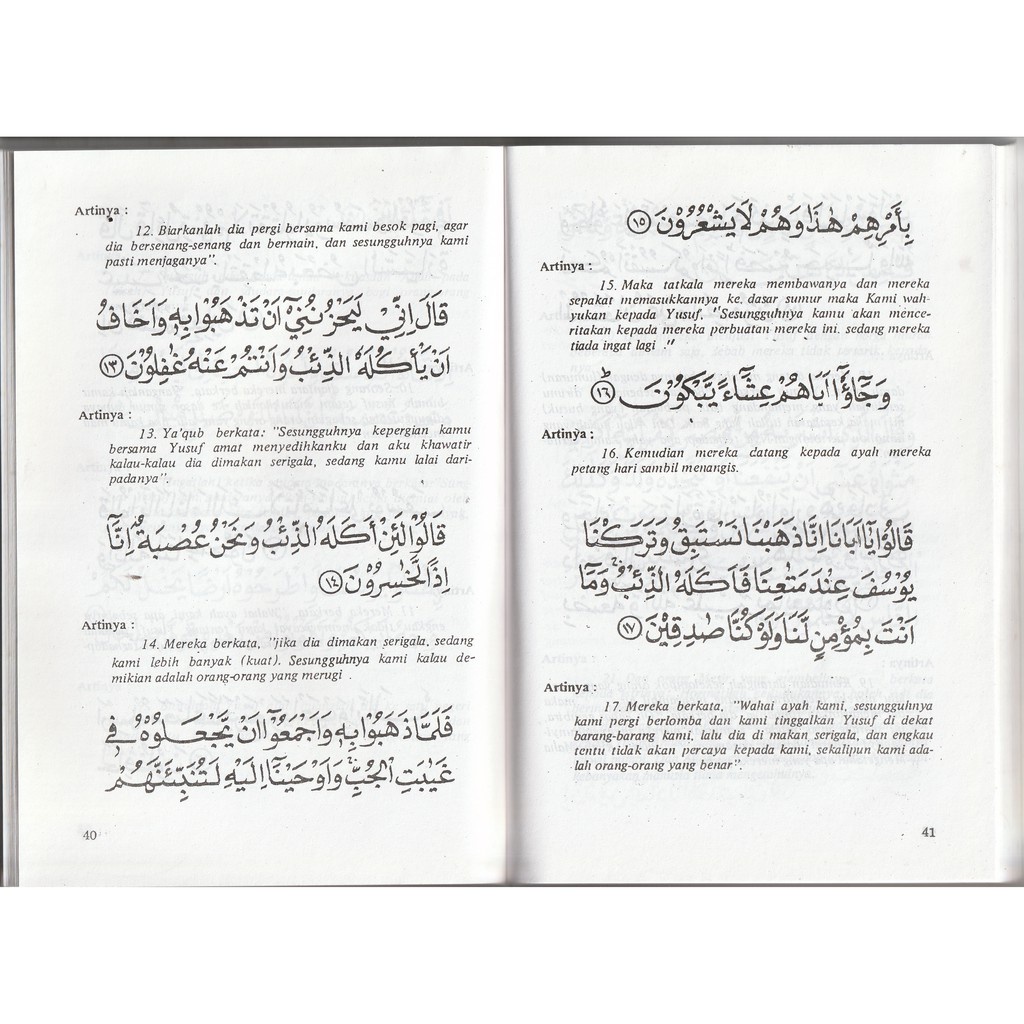 Artinya :
12. Biarkanlah dia pergi bersama kami besok pagi, agar
dia bersenang-senang dan bermain, dan sesungguhnya kami
pasti menjaganya".
قَالَ اِنِّيْ لَيَحْزُنُنِيْٓ اَنْ تَذْهَبُوْا بِهٖ وَاَخَافُ
اَنْ يَأْكُلَهُ الذِّئْبُ وَاَنْتُمْ عَنْهُ غٰفِلُوْنَ ﴿١٣﴾
Artinya :
13. Ya'qub berkata: "Sesungguhnya kepergian kamu
bersama Yusuf amat menyedihkanku dan aku khawatir
kalau-kalau dia dimakan serigala, sedang kamu lalai dari-
padanya".
قَالُوْا لَئِنْ اَكَلَهُ الذِّئْبُ وَنَحْنُ عُصْبَةٌ اِنَّآ
اِذًا لَّخٰسِرُوْنَ ﴿١٤﴾
Artinya :
14. Mereka berkata, "jika dia dimakan serigala, sedang
kami lebih banyak (kuat). Sesungguhnya kami kalau de-
mikian adalah orang-orang yang merugi .
فَلَمَّا ذَهَبُوْا بِهٖ وَاَجْمَعُوْٓا اَنْ يَّجْعَلُوْهُ فِيْ
غَيٰبَتِ الْجُبِّ وَاَوْحَيْنَآ اِلَيْهِ لَتُنَبِّئَنَّهُمْ
40
بِاَمْرِهِمْ هٰذَا وَهُمْ لَا يَشْعُرُوْنَ ﴿١٥﴾
Artinya :
15. Maka tatkala mereka membawanya dan mereka
sepakat memasukkannya ke dasar sumur maka Kami wah-
yukan kepada Yusuf, "Sesungguhnya kamu akan mence-
ritakan kepada mereka perbuatan mereka ini, sedang mereka
tiada ingat lagi ."
وَجَآؤُٓا اَبَاهُمْ عِشَآءً يَّبْكُوْنَ ﴿١٦﴾
Artinya :
16. Kemudian mereka datang kepada ayah mereka
petang hari sambil menangis.
قَالُوْا يٰٓاَبَانَآ اِنَّا ذَهَبْنَا نَسْتَبِقُ وَتَرَكْنَا
يُوْسُفَ عِنْدَ مَتٰعِنَا فَاَكَلَهُ الذِّئْبُ وَمَآ
اَنْتَ بِمُؤْمِنٍ لَّنَا وَلَوْ كُنَّا صٰدِقِيْنَ ﴿١٧﴾
Artinya :
17. Mereka berkata, "Wahai ayah kami, sesungguhnya
kami pergi berlomba dan kami tinggalkan Yusuf di dekat
barang-barang kami, lalu dia di makan serigala, dan engkau
tentu tidak akan percaya kepada kami, sekalipun kami ada-
lah orang-orang yang benar".
41